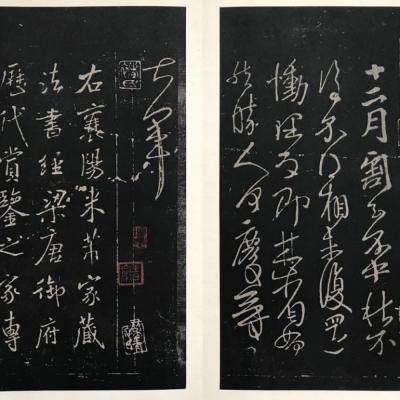 十二月割至不中秋不
復不得相未復還
慟理為即甚省如何
然勝人何慶等
大軍
右襄陽米芾家藏
法書經梁唐御府
歷代賞鑒之家傳